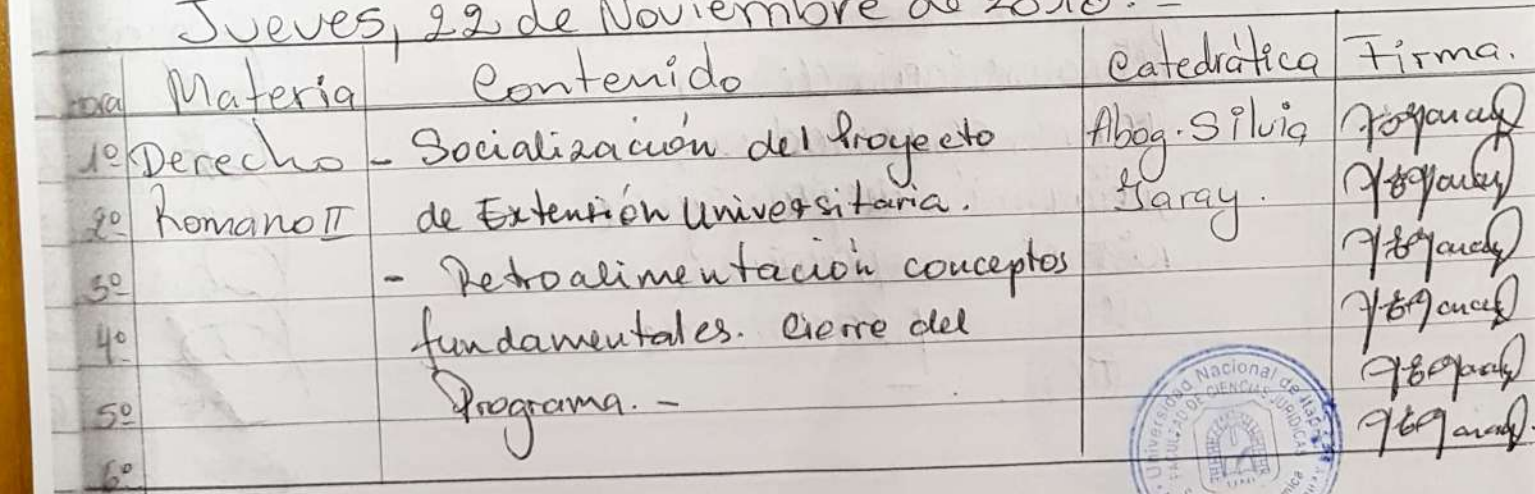 Jueves, 22 de Noviembre de 2018. -
Hora Materia Contenido Catedrática Firma.
1º Derecho - Socialización del Proyecto Abog. Silvia
2º Romano II de Extensión Universitaria. Garay.
3º - Retroalimentación conceptos
4º fundamentales. Cierre del
5º Programa. -
6º
Universidad Nacional de Itapúa
FACULTAD DE CIENCIAS JURÍDICAS
UNI